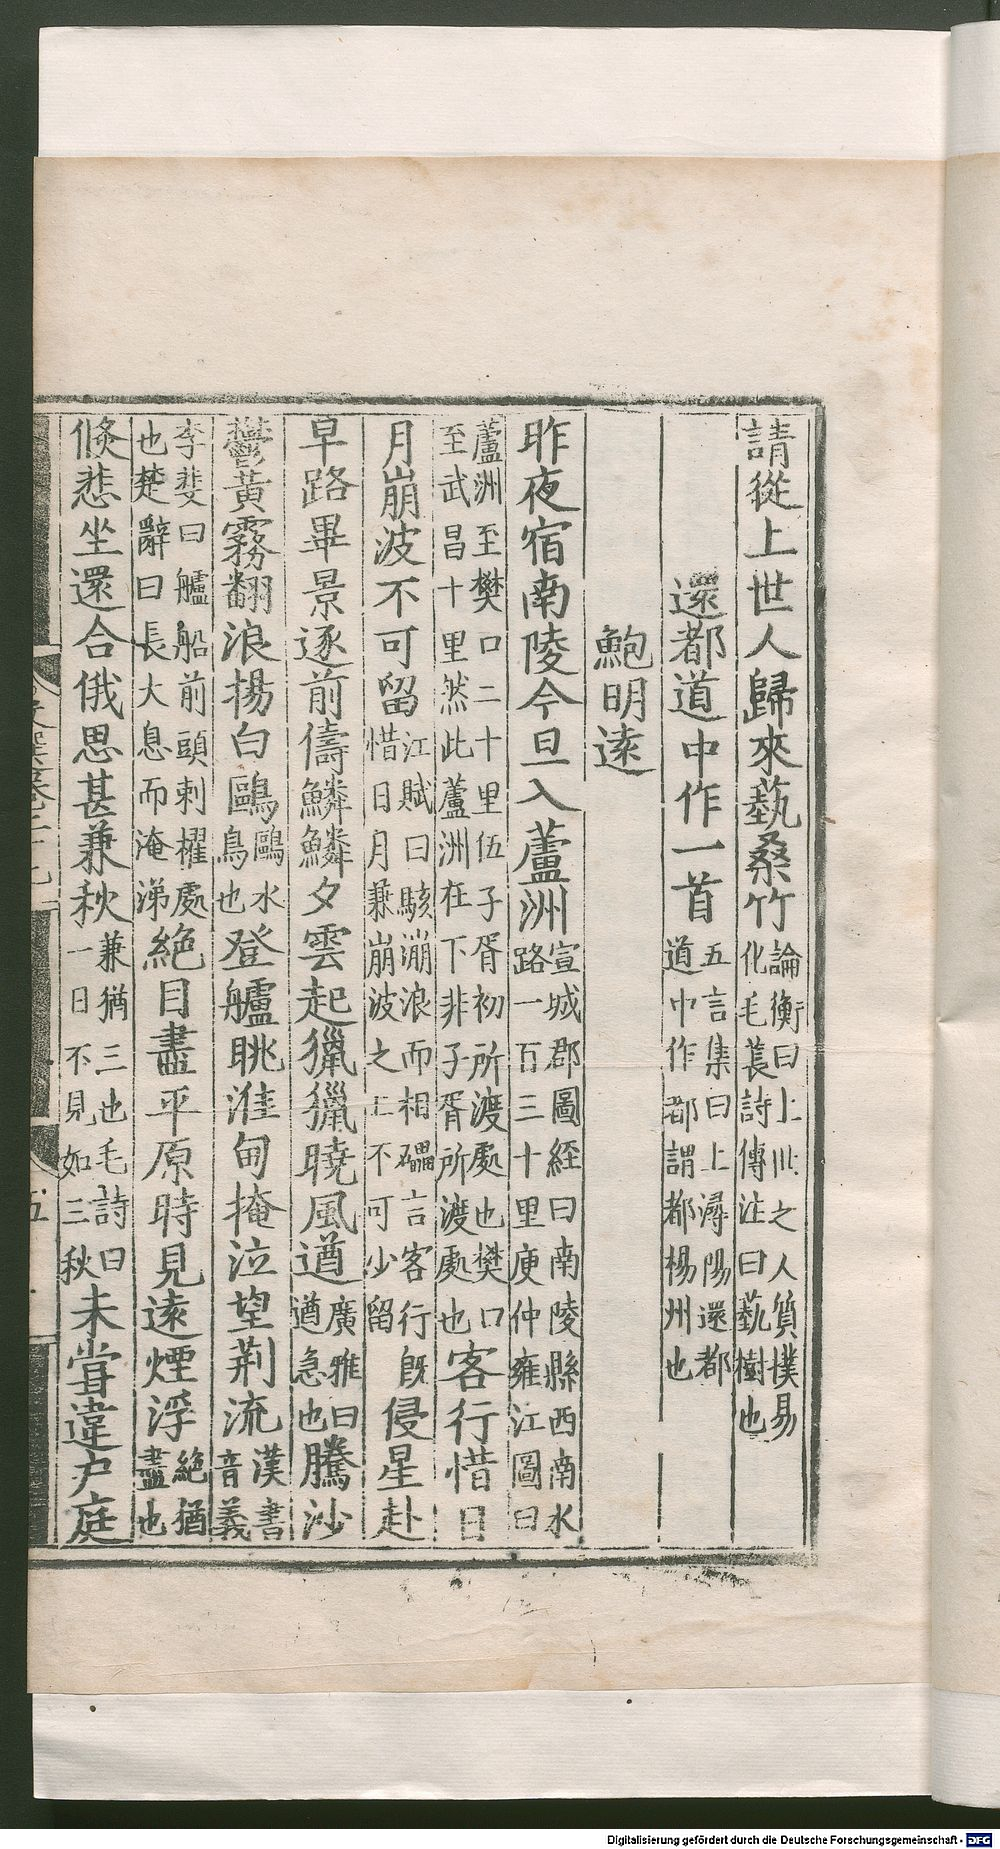 請從上世人歸來蓺桑竹論衡曰上世之人質撲易化毛萇詩傳注曰蓺樹也
還都道中作一首五言集曰上潯陽還都道中作都謂都楊州也
鮑明遠
昨夜宿南陵今旦入蘆洲宣城郡圖經曰南陵縣西南水路一百三十里庾仲雍江圖曰
蘆洲至樊口二十里伍子胥初所渡處也樊口至武昌十里然此蘆洲在下非子胥所渡處也客行惜日
月崩波不可留江賦曰駭漰浪而相礧言客行既惜日月兼崩波之上不可少留侵星赴
早路畢景逐前儔鱗鱗夕雲起獵獵曉風遒廣雅曰遒急也騰沙
鬱黃霧翻浪揚白鷗鷗水鳥也登艫眺淮甸掩泣望荆流漢書音義
李斐曰艫船前頭刺櫂處也楚辭曰長大息而淹涕絶目盡平原時見遠煙浮絶猶盡也
倐悲坐還合俄思甚兼秋兼猶三也毛詩曰一日不見如三秋未嘗違户庭
五
Digitalisierung gefördert durch die Deutsche Forschungsgemeinschaft - DFG